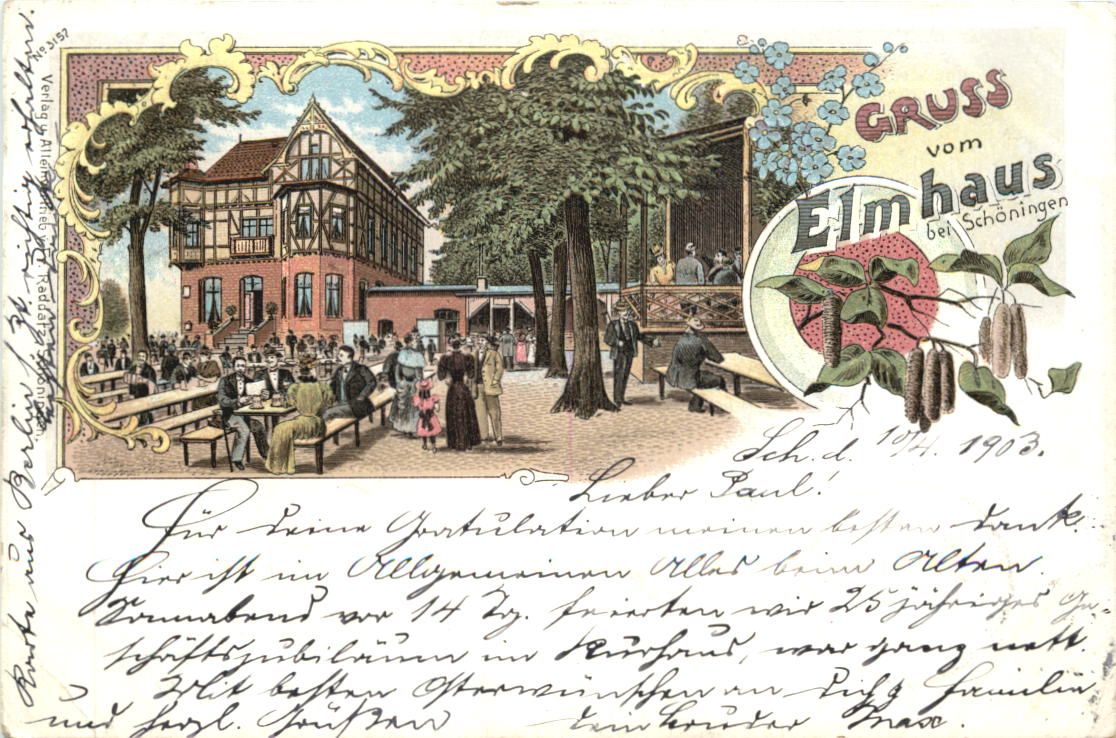 GRUSS
vom
Elmhaus
bei Schöningen
No 3157
Verlag u. Alleinvertrieb
Radatz, Schöningen.
Sch. d. 10/4. 1903.
Lieber Paul!
Für deine Gratulation meinen besten Dank.
Hier ist im Allgemeinen Alles beim Alten.
Sonnabend vor 14 Tg. feierten wir 25 jähriges Ge-
schäftsjubiläum im Kurhaus, war ganz nett.
Mit besten Osterwünschen an dich & Familie
und herzl. Grüßen dein Bruder Max.
Karte aus Berlin richtig erhalten.